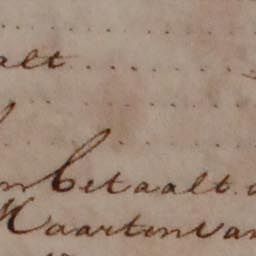 alt
betaalt
Maarten van